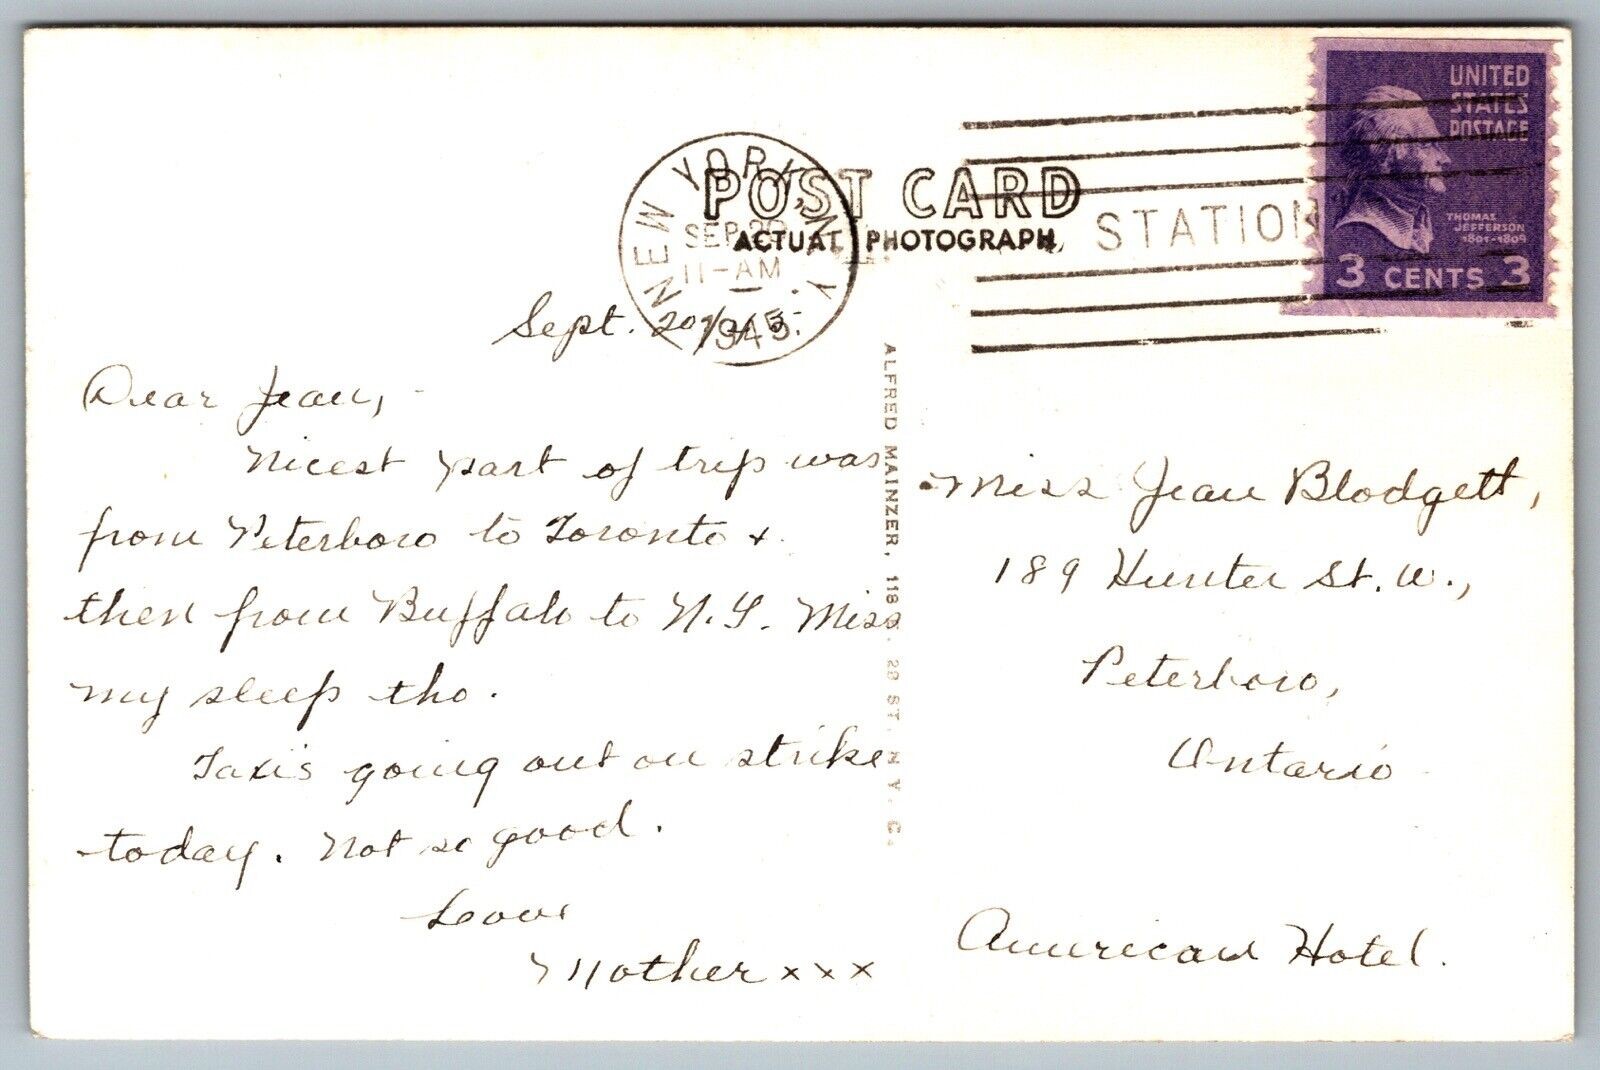 UNITED
STATES
POSTAGE
THOMAS
JEFFERSON
1801-1809
3 CENTS 3
NEW YORK, N.Y.
SEP 20
11-AM
1945
STATION
POST CARD
ACTUAL PHOTOGRAPH
ALFRED MAINZER, 118 . 28 ST. N.Y.C.
Sept. 20/45.
Dear Jean, -
Nicest part of trip was
from Peterboro to Toronto +
then from Buffalo to N.Y. Miss
my sleep tho.
Taxi's going out on strike
today. Not so good.
Love
Mother x x x
Miss Jean Blodgett,
189 Hunter St. W.,
Peterboro,
Ontario
American Hotel.